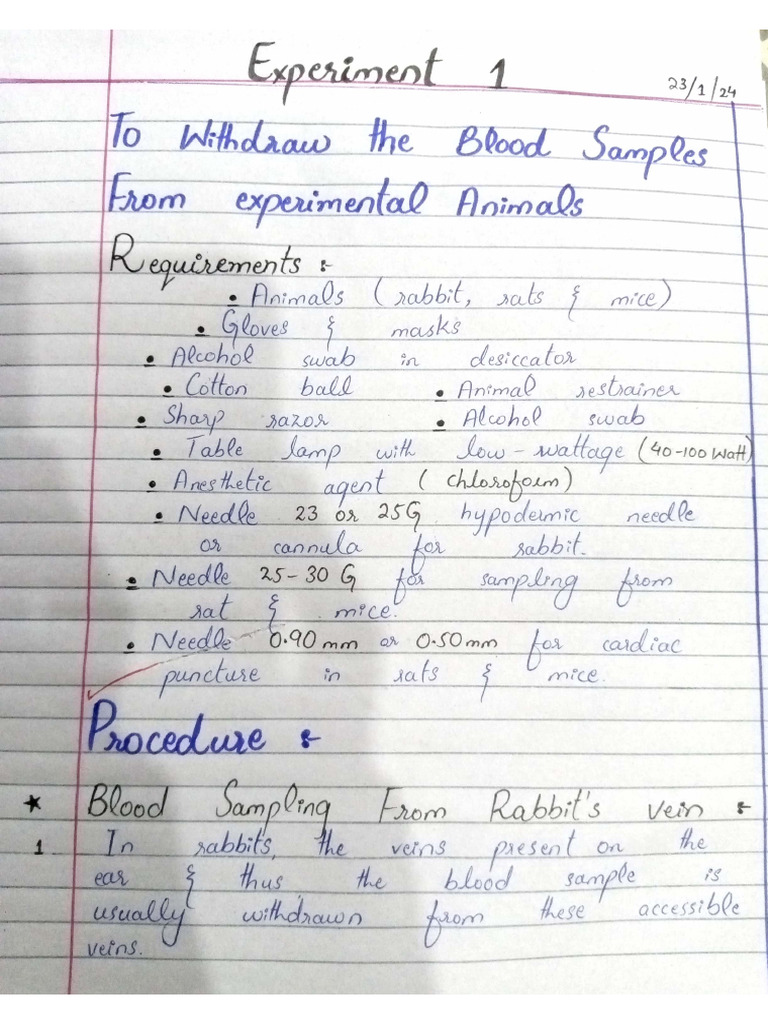 Experiment 1
23/1/24
To Withdraw the Blood Samples
From experimental Animals
Requirements :-
• Animals (rabbit, rats & mice)
• Gloves & masks
• Alcohol swab in desiccator
• Cotton ball • Animal restrainer
• Sharp razor • Alcohol swab
• Table lamp with low-wattage (40-100 Watt)
• Anesthetic agent (chloroform)
• Needle 23 or 25G hypodermic needle
or cannula for rabbit.
• Needle 25-30 G for sampling from
rat & mice.
• Needle 0.90 mm or 0.50 mm for cardiac
puncture in rats & mice.
Procedure :-
★ Blood Sampling From Rabbit's vein :-
1 In rabbits, the veins present on the
ear & thus the blood sample is
usually withdrawn from these accessible
veins.